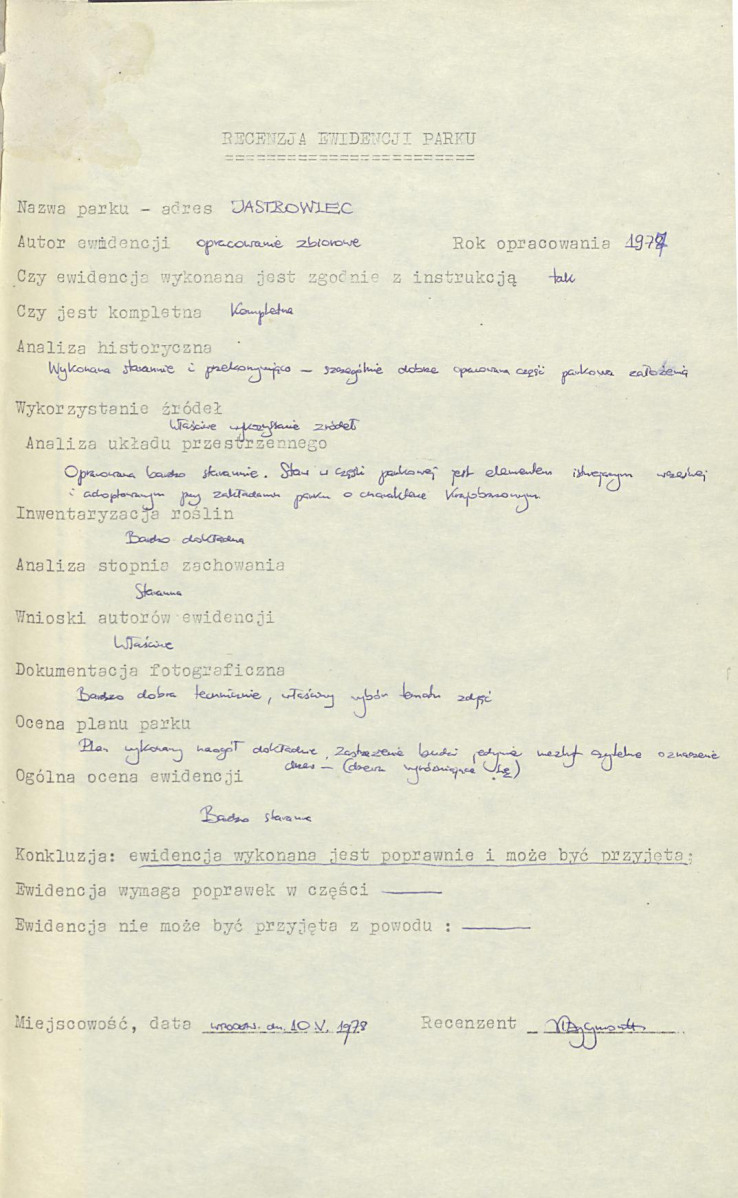 RECENZJA EWIDENCJI PARKU
========================
Nazwa parku - adres JASTROWIEC
Autor ewidencji opracowanie zbiorowe Rok opracowania 1977
Czy ewidencja wykonana jest zgodnie z instrukcją tak
Czy jest kompletna Kompletna
Analiza historyczna
Wykonana starannie i przekonywująco – szczególnie dobrze opracowana część parkowa założenia
Wykorzystanie źródeł
Właściwe wykorzystanie źródeł
Analiza układu przestrzennego
Opracowana bardzo starannie. Staw w części parkowej jest elementem istniejącym wcześniej
i adoptowanym przy zakładaniu parku o charakterze Krajobrazowym
Inwentaryzacja roślin
Bardzo dokładna
Analiza stopnia zachowania
Staranna
Wnioski autorów ewidencji
Właściwe
Dokumentacja fotograficzna
Bardzo dobra technicznie, właściwy wybór tematu zdjęć
Ocena planu parku
Plan wykonany naogół dokładnie, zastrzeżenie budzi jedynie niezbyt czytelne oznaczenie
drzew – (drzewa wyróżniające się)
Ogólna ocena ewidencji
Bardzo staranna
Konkluzja: ewidencja wykonana jest poprawnie i może być przyjęta;
Ewidencja wymaga poprawek w części ———
Ewidencja nie może być przyjęta z powodu : ———
Miejscowość, data Wrocław. dn. 10 V. 1978 Recenzent